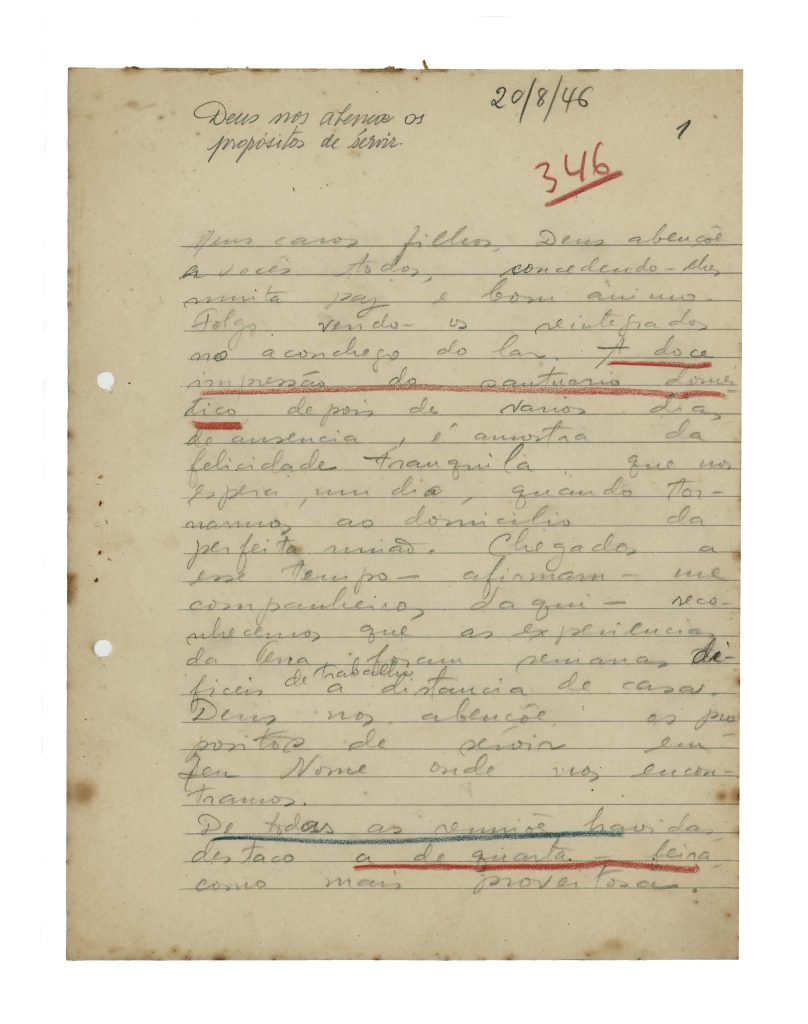 20/8/46
Deus nos abençoe os
propósitos de servir.
1
346
Meus caros filhos, Deus abençôe
a vocês todos, concedendo-lhes
muita paz e bom ânimo.
Folgo vendo-os reintegrados
no aconchego do lar. A doce
impressão do santuario domés-
tico, depois de varios dias
de ausencia, é amostra da
felicidade tranquila que nos
espera, um dia, quando tor-
narmos ao domicilio da
perfeita união. Chegados a
esse tempo - afirmam-me
companheiros daqui - reco-
nhecemos que as experiencias
da Terra foram semanas di-
ficeis de trabalho a distancia de casa.
Deus nos abençôe os pro
positos de servir em
Seu Nome onde nos encon-
tramos.
De todas as reuniões havidas,
destaco a de quarta-feira
como mais proveitosa.